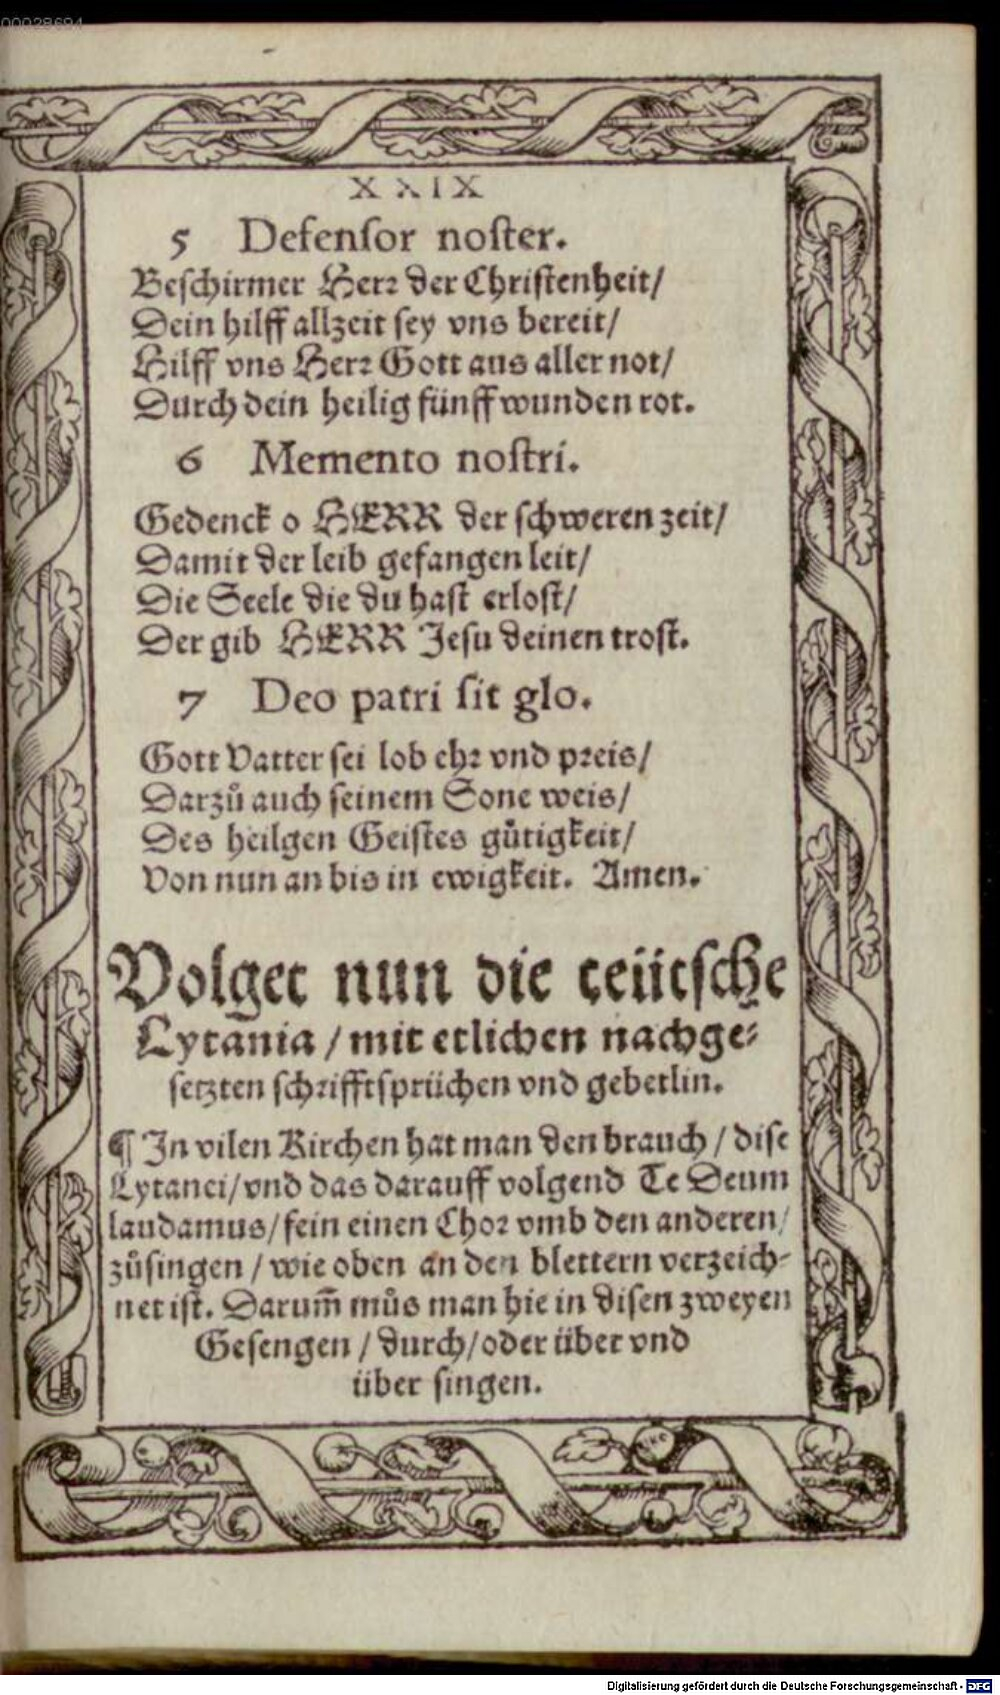 00028694
XXIX
5 Defensor noster.
Beschirmer Herr der Christenheit/
Dein hilff allzeit sey vns bereit/
Hilff vns Herr Gott aus aller not/
Durch dein heilig fünff wunden rot.
6 Memento nostri.
Gedenck o HERR der schweren zeit/
Damit der leib gefangen leit/
Die Seele die du hast erlost/
Der gib HERR Jesu deinen trost.
7 Deo patri sit glo.
Gott Vatter sei lob ehr vnd preis/
Darzů auch seinem Sone weis/
Des heilgen Geistes gůtigkeit/
Von nun an bis in ewigkeit. Amen.
Volget nun die teütsche
Lytania / mit etlichen nachge⸗
setzten schrifftsprüchen vnd gebetlin.
¶ In vilen Kirchen hat man den brauch / dise
Lytanei/vnd das darauff volgend Te Deum
laudamus/fein einen Chor vmb den anderen/
zůsingen / wie oben an den blettern verzeich⸗
net ist. Darum̄ můs man hie in disen zweyen
Gesengen / durch/oder über vnd
über singen.
Digitalisierung gefördert durch die Deutsche Forschungsgemeinschaft - DFG